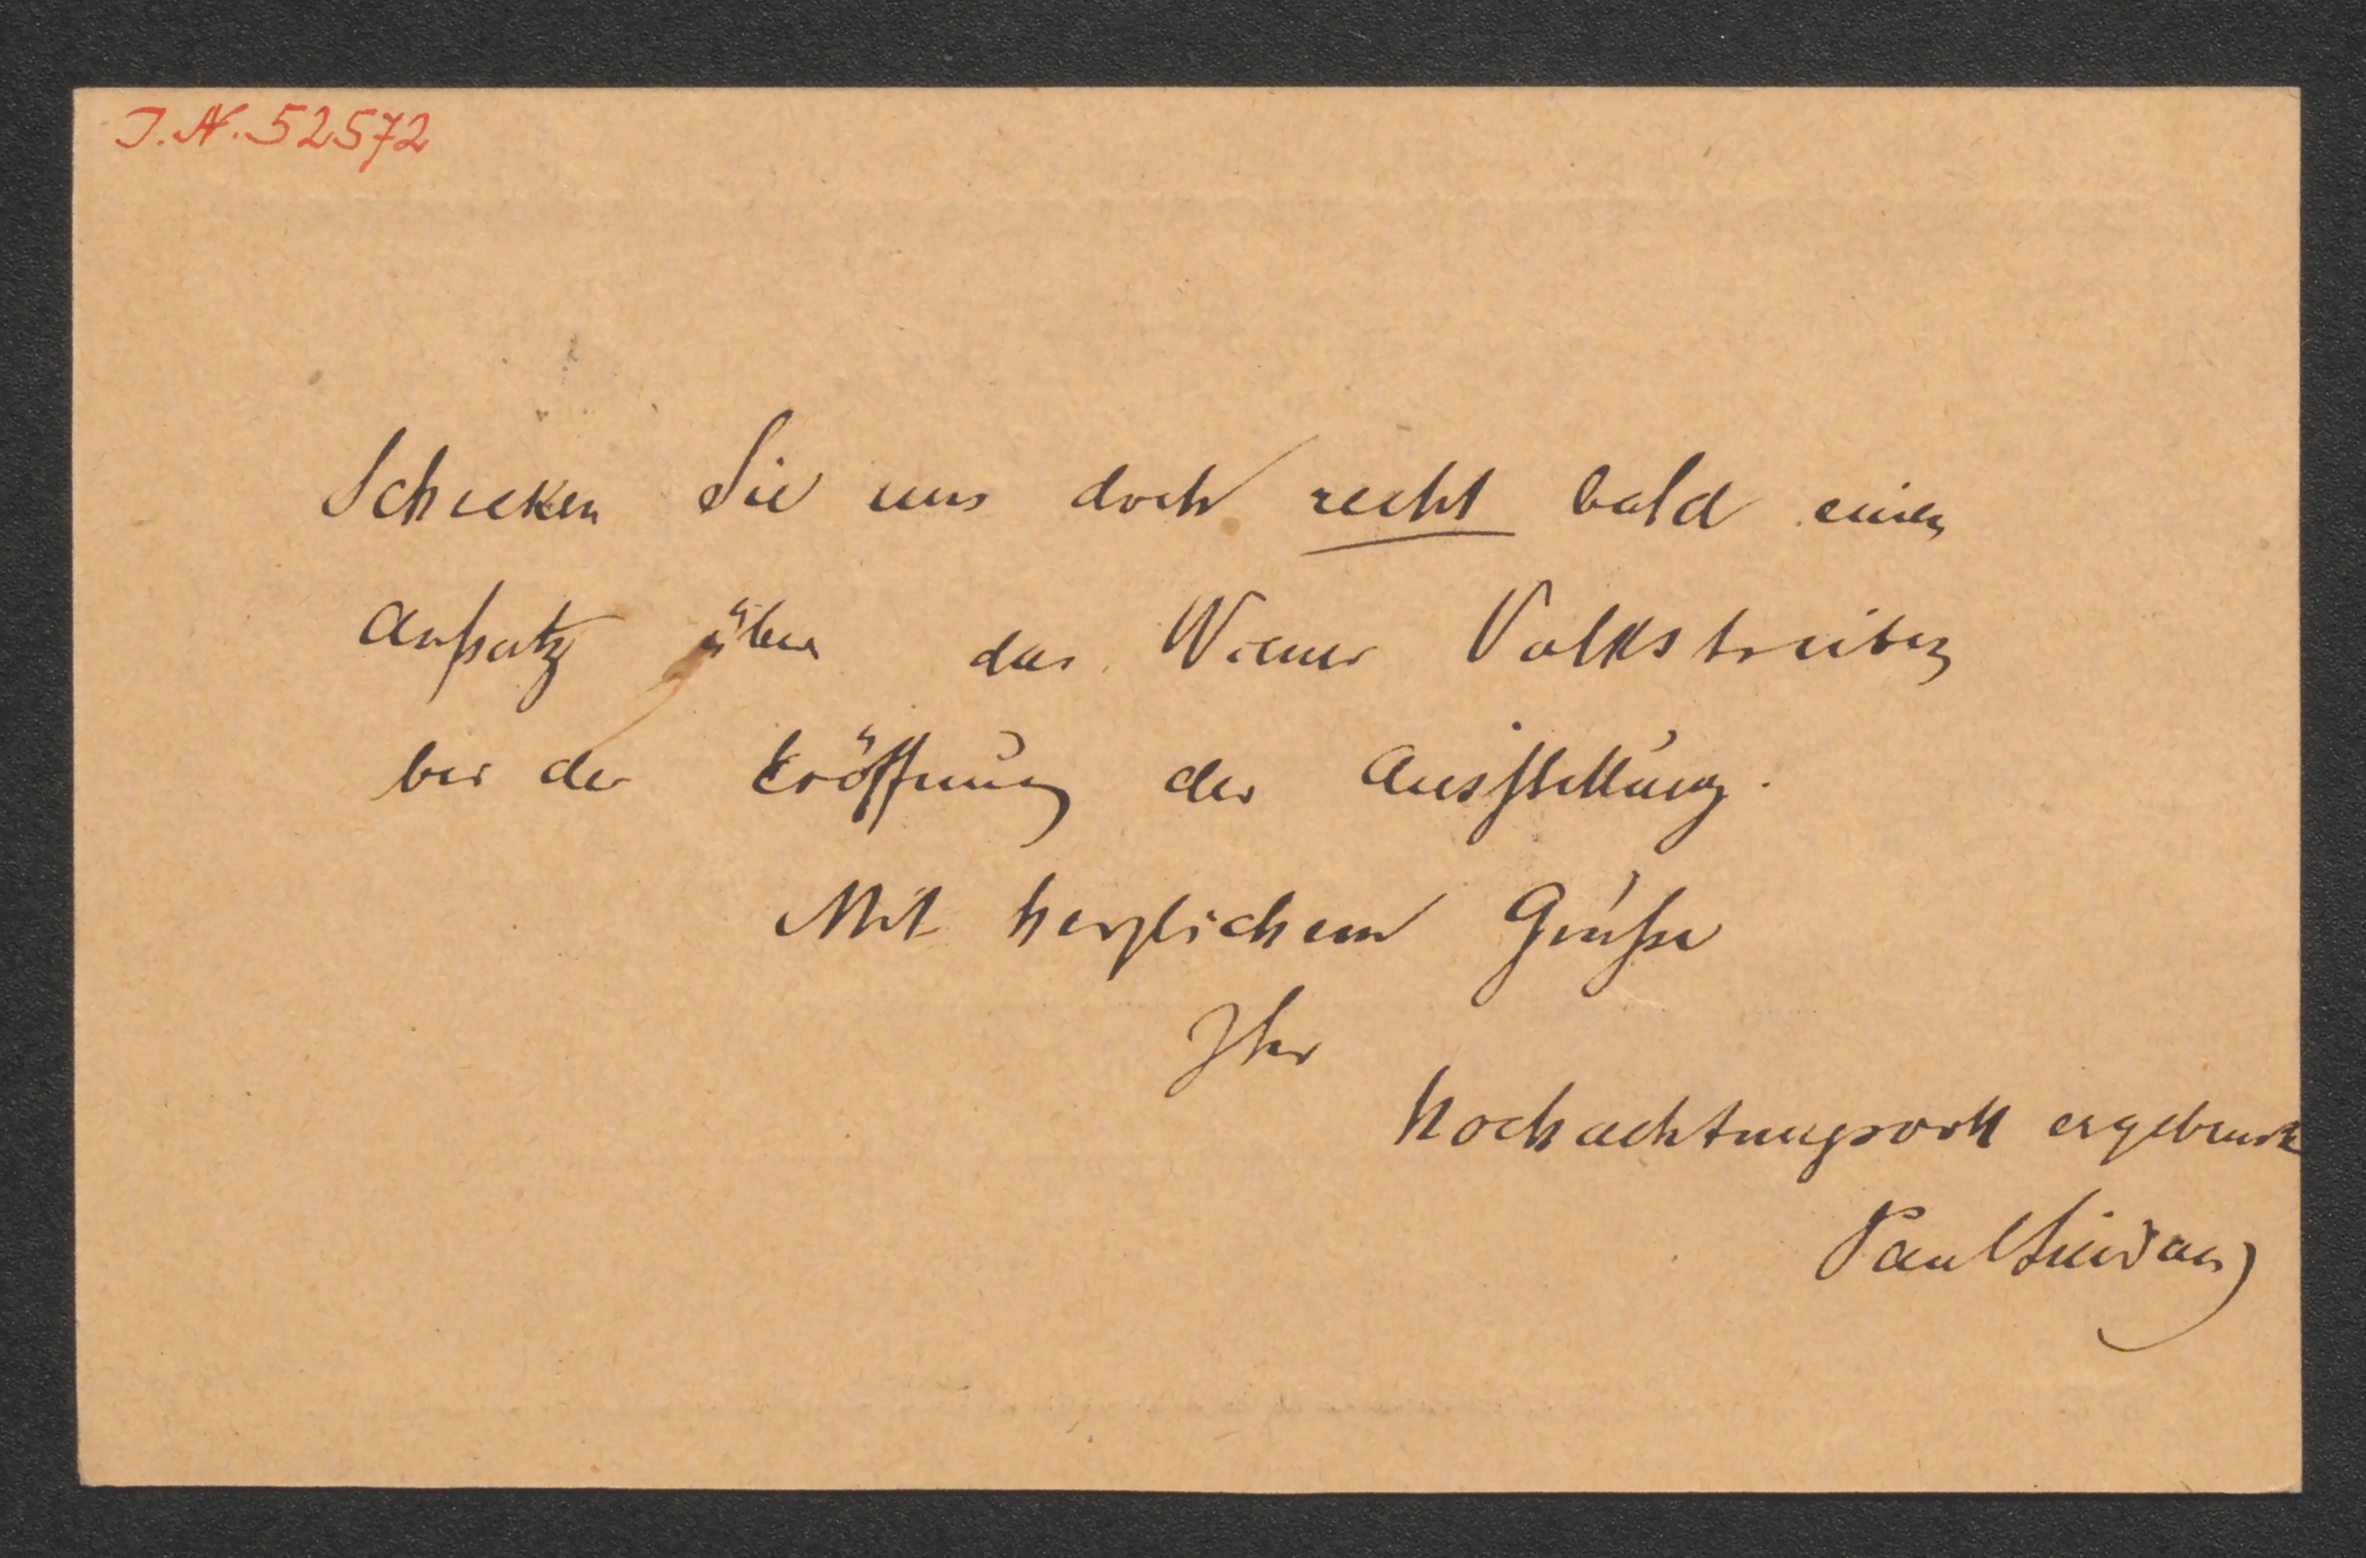 J.N. 52572
Schicken Sie uns doch recht bald einen
Aufsatz über das Wiener Volkstreiben
bei der Eröffnung der Ausstellung.
Mit herzlichem Gruße
Ihr
hochachtungsvoll ergebenster
Paul Lindau